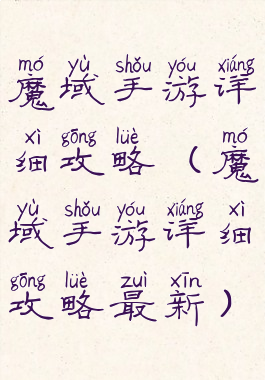 mó yù shǒu yóu xiáng
魔域手游详
xì gōng lüè mó
细攻略（魔
yù shǒu yóu xiáng xì
域手游详细
gōng lüè zuì xīn
攻略最新）